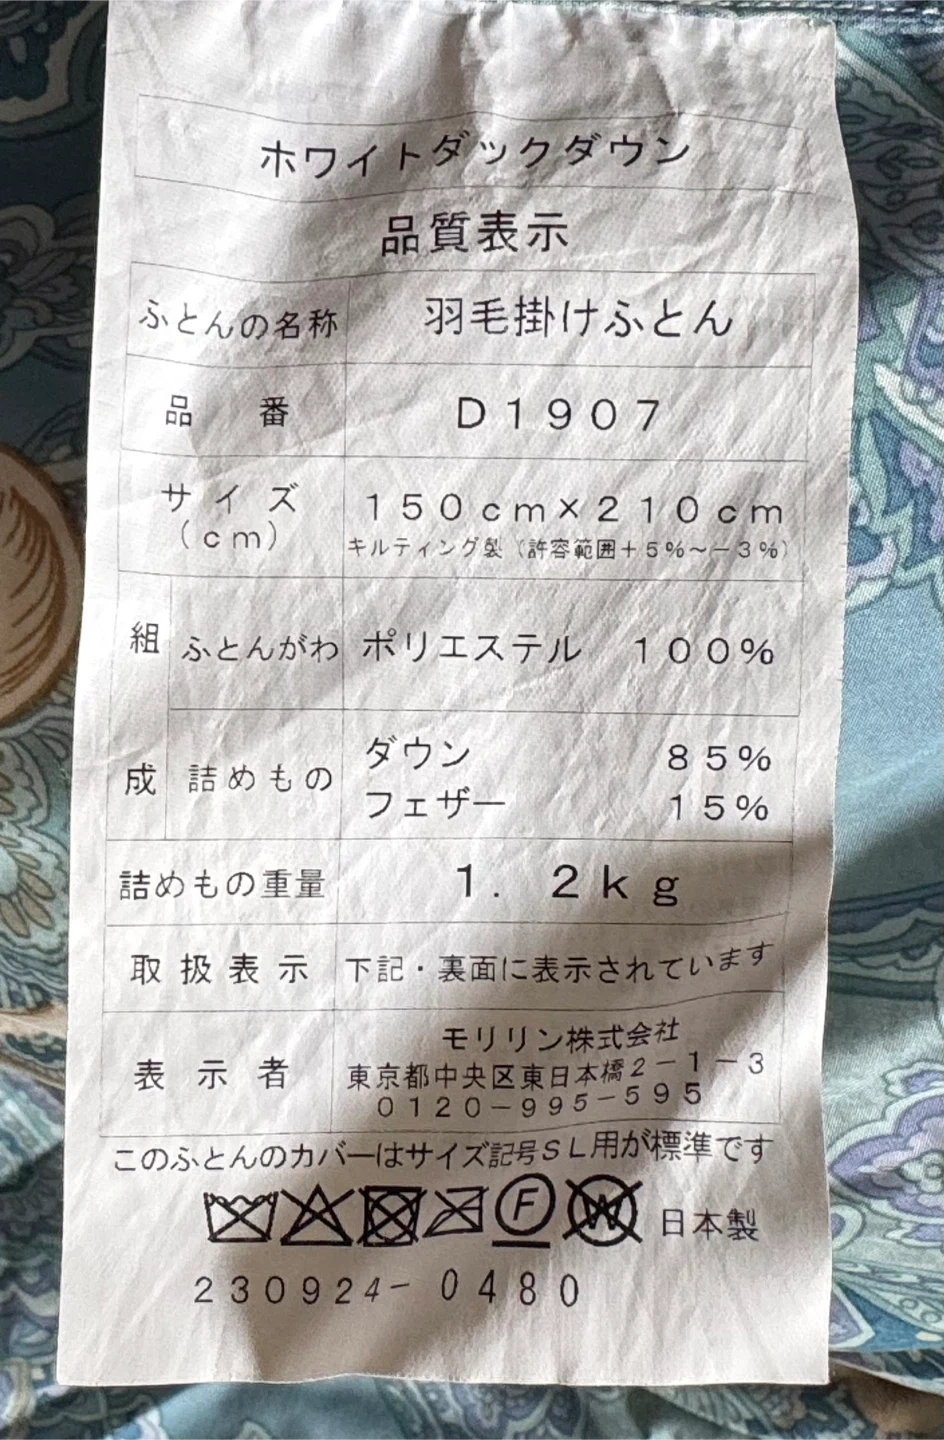 ホワイトダックダウン
品質表示
ふとんの名称 羽毛掛けふとん
品番 D1907
サイズ (cm) 150cm×210cm
キルティング製（許容範囲+5%～-3%）
組成 ふとんがわ ポリエステル 100%
詰めもの ダウン 85%
フェザー 15%
詰めもの重量 1.2kg
取扱表示 下記・裏面に表示されています
表示者 モリリン株式会社
東京都中央区東日本橋2-1-3
0120-995-595
このふとんのカバーはサイズ記号SL用が標準です
F W 日本製
230924-0480